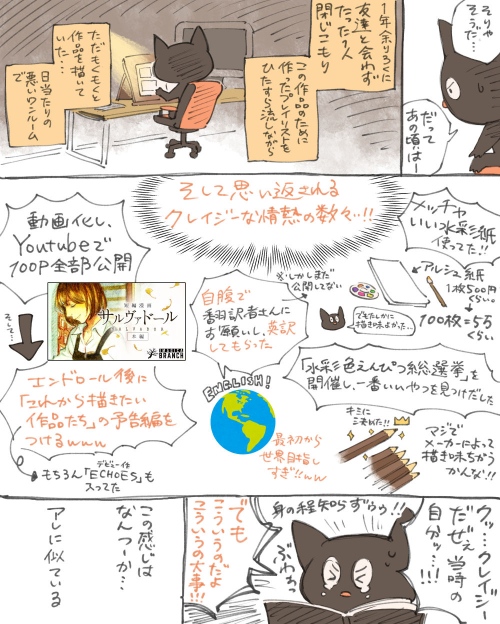 そりゃ
そうだ…
だって
あの頃はー
1年余りろくに
友達と会わず
たった1人
閉じこもり
この作品のために
作ったプレイリストを
ひたすら流しながら
日当たりの
悪いワンルーム
で
ただもくもくと
作品を描いて
いた…
そして思い返される
クレイジーな情熱の数々!!
メッチャ
いい水彩紙
使ってた!!
アルシュ紙
1枚500円
くらい
100枚=5万
くらい
でもたしかに
描き味よかった…
※しかしまだ
公開してない
自腹で
翻訳者さんに
お願いし、英訳
してもらった
ENGLISH!
最初から
世界目指し
すぎ!!ww
動画化し、
Youtubeで
100P全部公開
短編漫画
サルヴァドール
SALVADOR
本編
BRANCH
そして…
エンドロール後に
「これから描きたい
作品たち」の予告編を
つけるwww
デビュー作
もちろん「ECHOES」も
入ってた
「水彩色えんぴつ総選挙」
を開催し、一番いいやつを見つけだした
キミに
きめた!!
マジで
メーカーによって
描き味ちがう
かんな!!
クッ…クレイジー
だぜぇ 当時の
自分ッ…!!!
身の程知らずぅぅ!!
ぶわっ
でも
こういうのだよ
こういうの大事!!!
この感じは
なんつーか…
アレに似ている